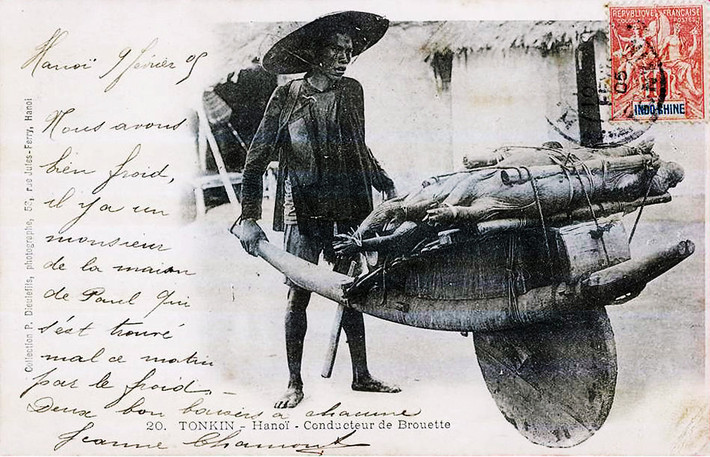 Hanoï 9 février 05
Nous avons
bien froid,
il y a un
monsieur
de la maison
de Paul qui
s'est trouvé
mal ce matin
par le froid.
Deux bon baisers à chacune
Jeanne Chamont
20. TONKIN - Hanoï - Conducteur de Brouette
Collection P. Dieulefils, photographe, 53, rue Jules-Ferry, Hanoi
RÉPUBLIQUE FRANÇAISE
COLONIES POSTES
INDO-CHINE
05